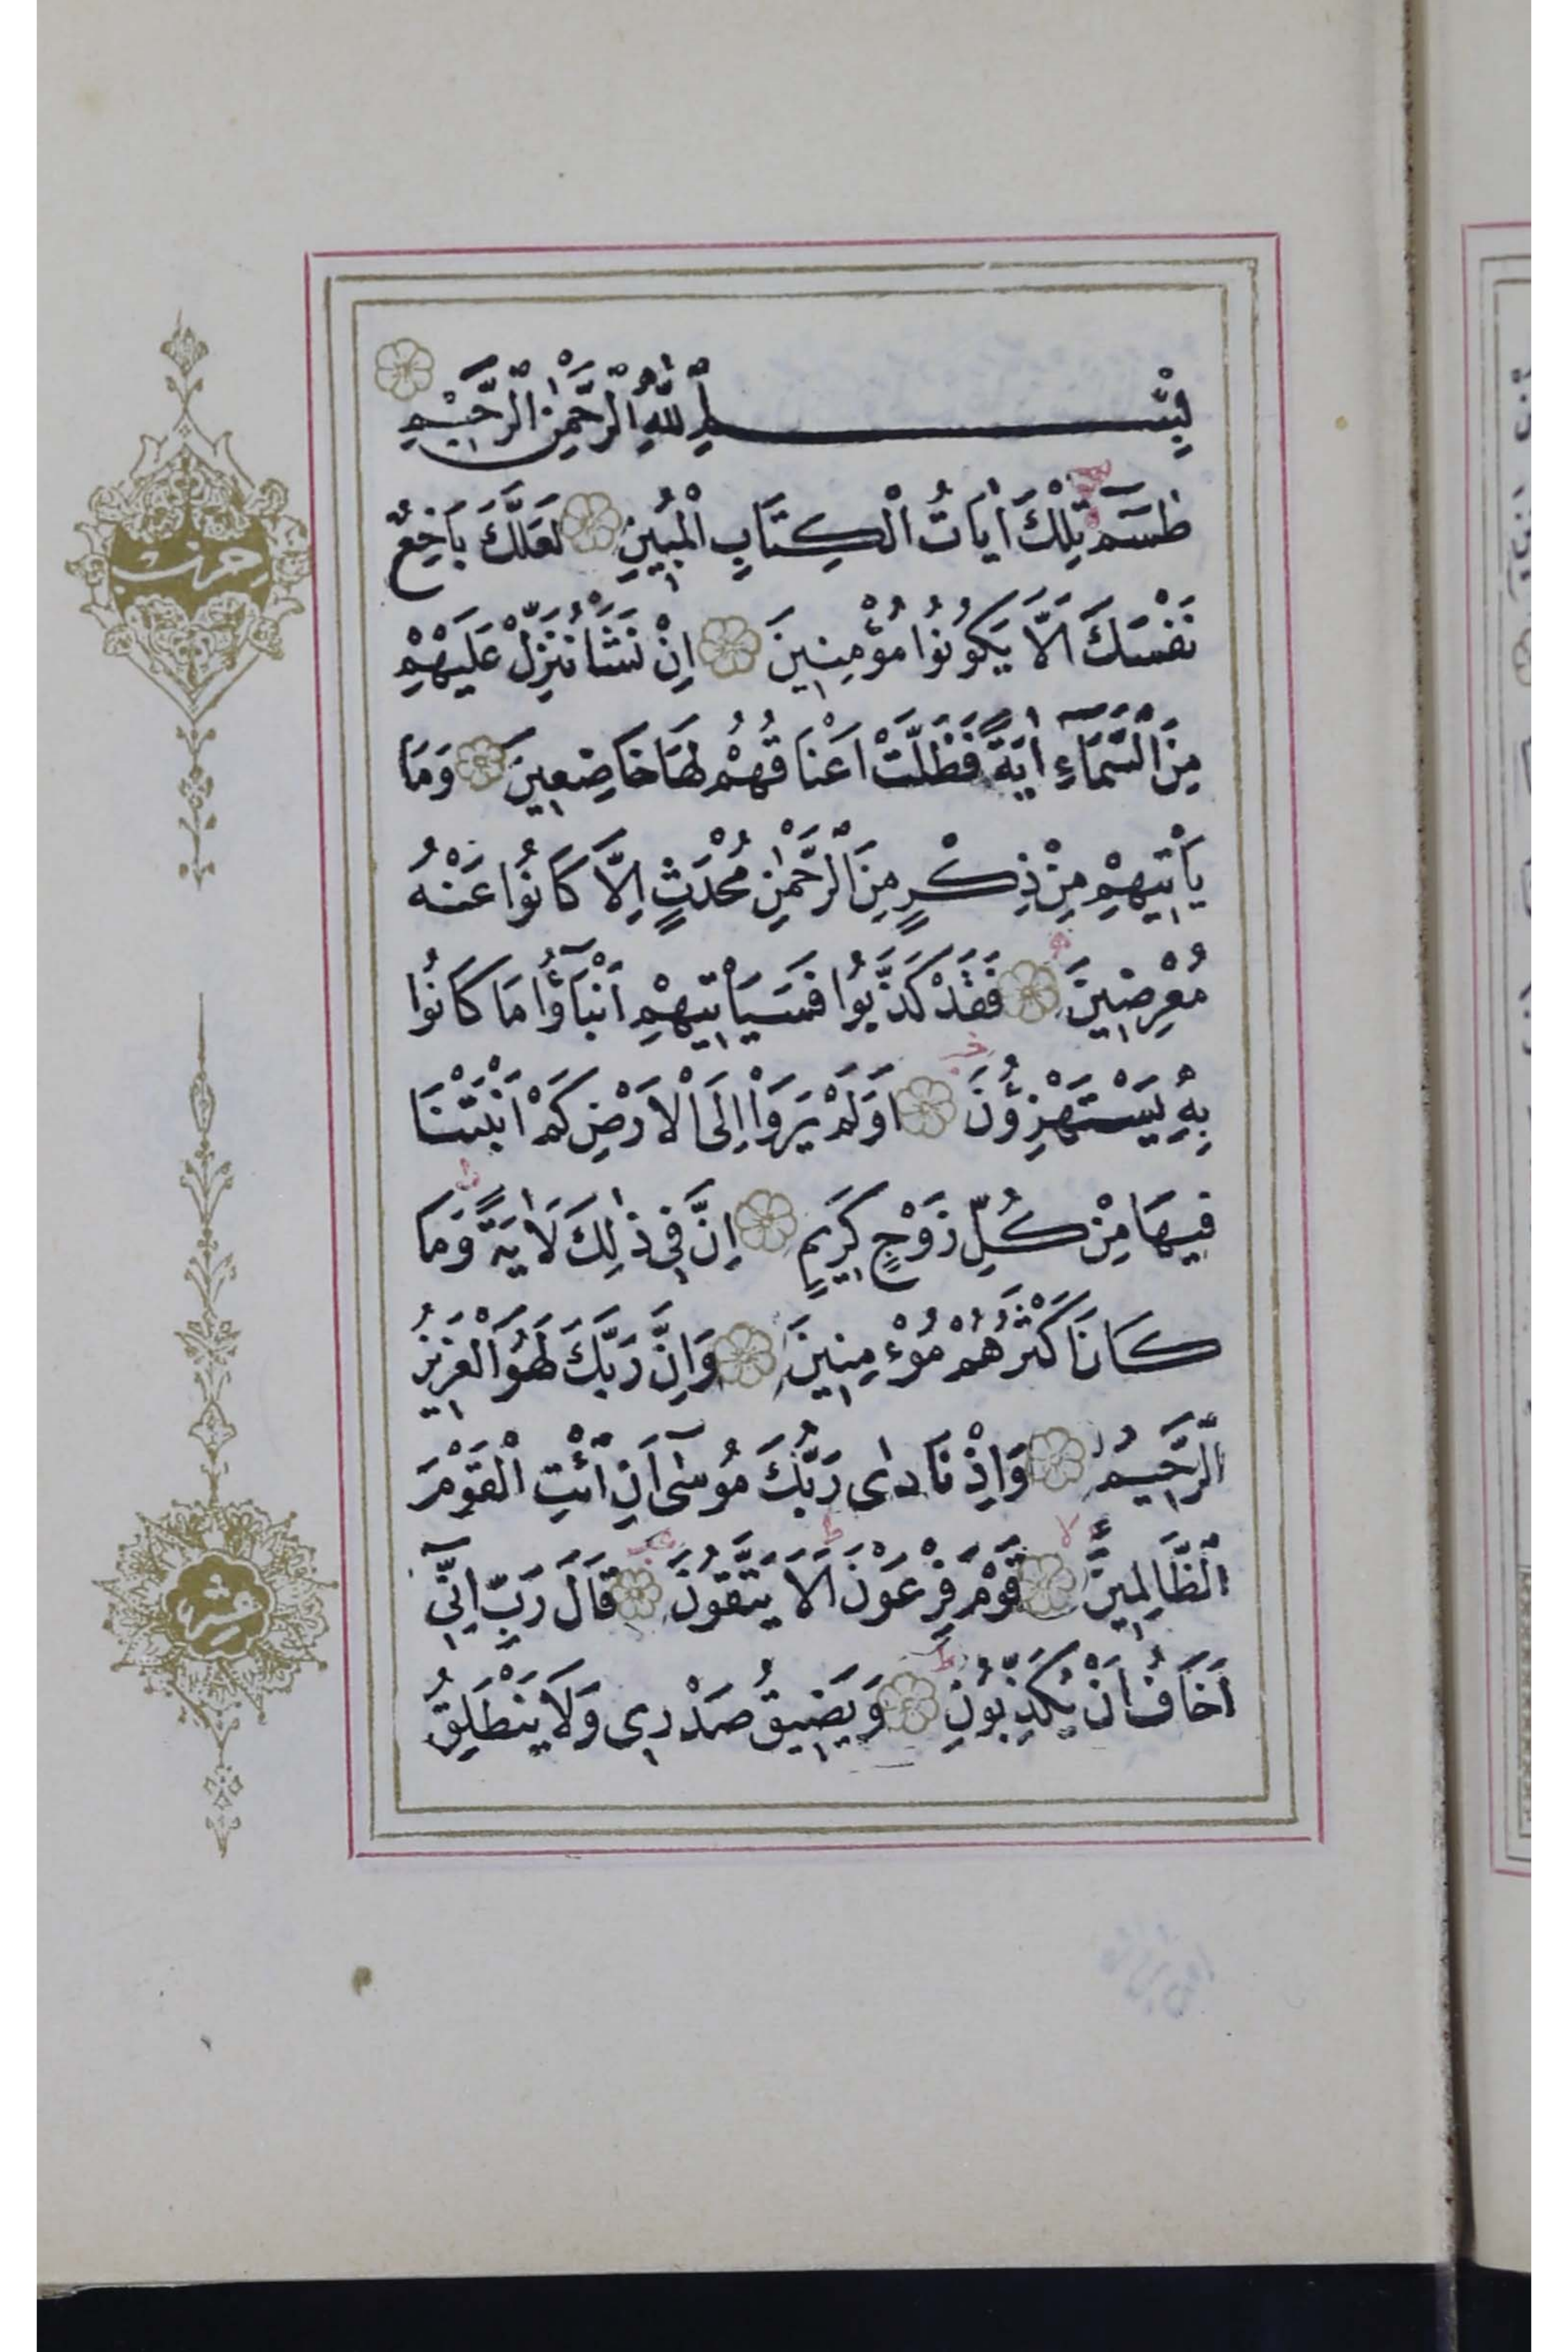 بِسْمِ اللّٰهِ الرَّحْمٰنِ الرَّحِيمِ
طٰسٓمٓ تِلْكَ اٰيَاتُ الْكِتَابِ الْمُبِينِ لَعَلَّكَ بَاخِعٌ
نَفْسَكَ اَلَّا يَكُونُوا مُؤْمِنِينَ اِنْ نَشَأْ نُنَزِّلْ عَلَيْهِمْ
مِنَ السَّمَآءِ اٰيَةً فَظَلَّتْ اَعْنَاقُهُمْ لَهَا خَاضِعِينَ وَمَا
يَأْتِيهِمْ مِنْ ذِكْرٍ مِنَ الرَّحْمٰنِ مُحْدَثٍ اِلَّا كَانُوا عَنْهُ
مُعْرِضِينَ فَقَدْ كَذَّبُوا فَسَيَأْتِيهِمْ اَنْبَآؤُا مَا كَانُوا
بِهِ يَسْتَهْزِؤُنَ اَوَلَمْ يَرَوْا اِلَى الْاَرْضِ كَمْ اَنْبَتْنَا
فِيهَا مِنْ كُلِّ زَوْجٍ كَرِيمٍ اِنَّ فِي ذٰلِكَ لَاٰيَةً وَمَا
كَانَ اَكْثَرُهُمْ مُؤْمِنِينَ وَاِنَّ رَبَّكَ لَهُوَ الْعَزِيزُ
الرَّحِيمُ وَاِذْ نَادٰى رَبُّكَ مُوسٰٓى اَنِ ائْتِ الْقَوْمَ
الظَّالِمِينَ قَوْمَ فِرْعَوْنَ اَلَا يَتَّقُونَ قَالَ رَبِّ اِنِّٓي
اَخَافُ اَنْ يُكَذِّبُونِ وَيَضِيقُ صَدْرِي وَلَا يَنْطَلِقُ
حزب
عشر